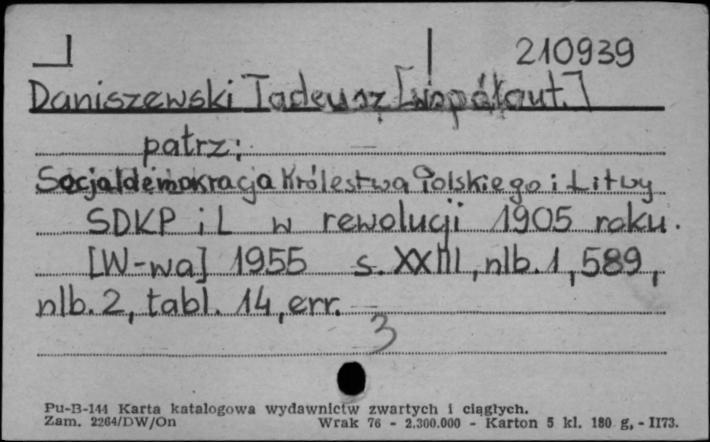 210939
Daniszewski Tadeusz [współaut.]
patrz:
Socjaldemokracja Królestwa Polskiego i Litwy
SDKP i L w rewolucji 1905 roku.
[W-wa] 1955 s. XXIII, nlb. 1, 589,
nlb. 2, tabl. 14, err.
3
Pu-B-144 Karta katalogowa wydawnictw zwartych i ciągłych.
Zam. 2264/DW/On Wrak 76 - 2.300.000 - Karton 5 kl. 180 g, - II73.